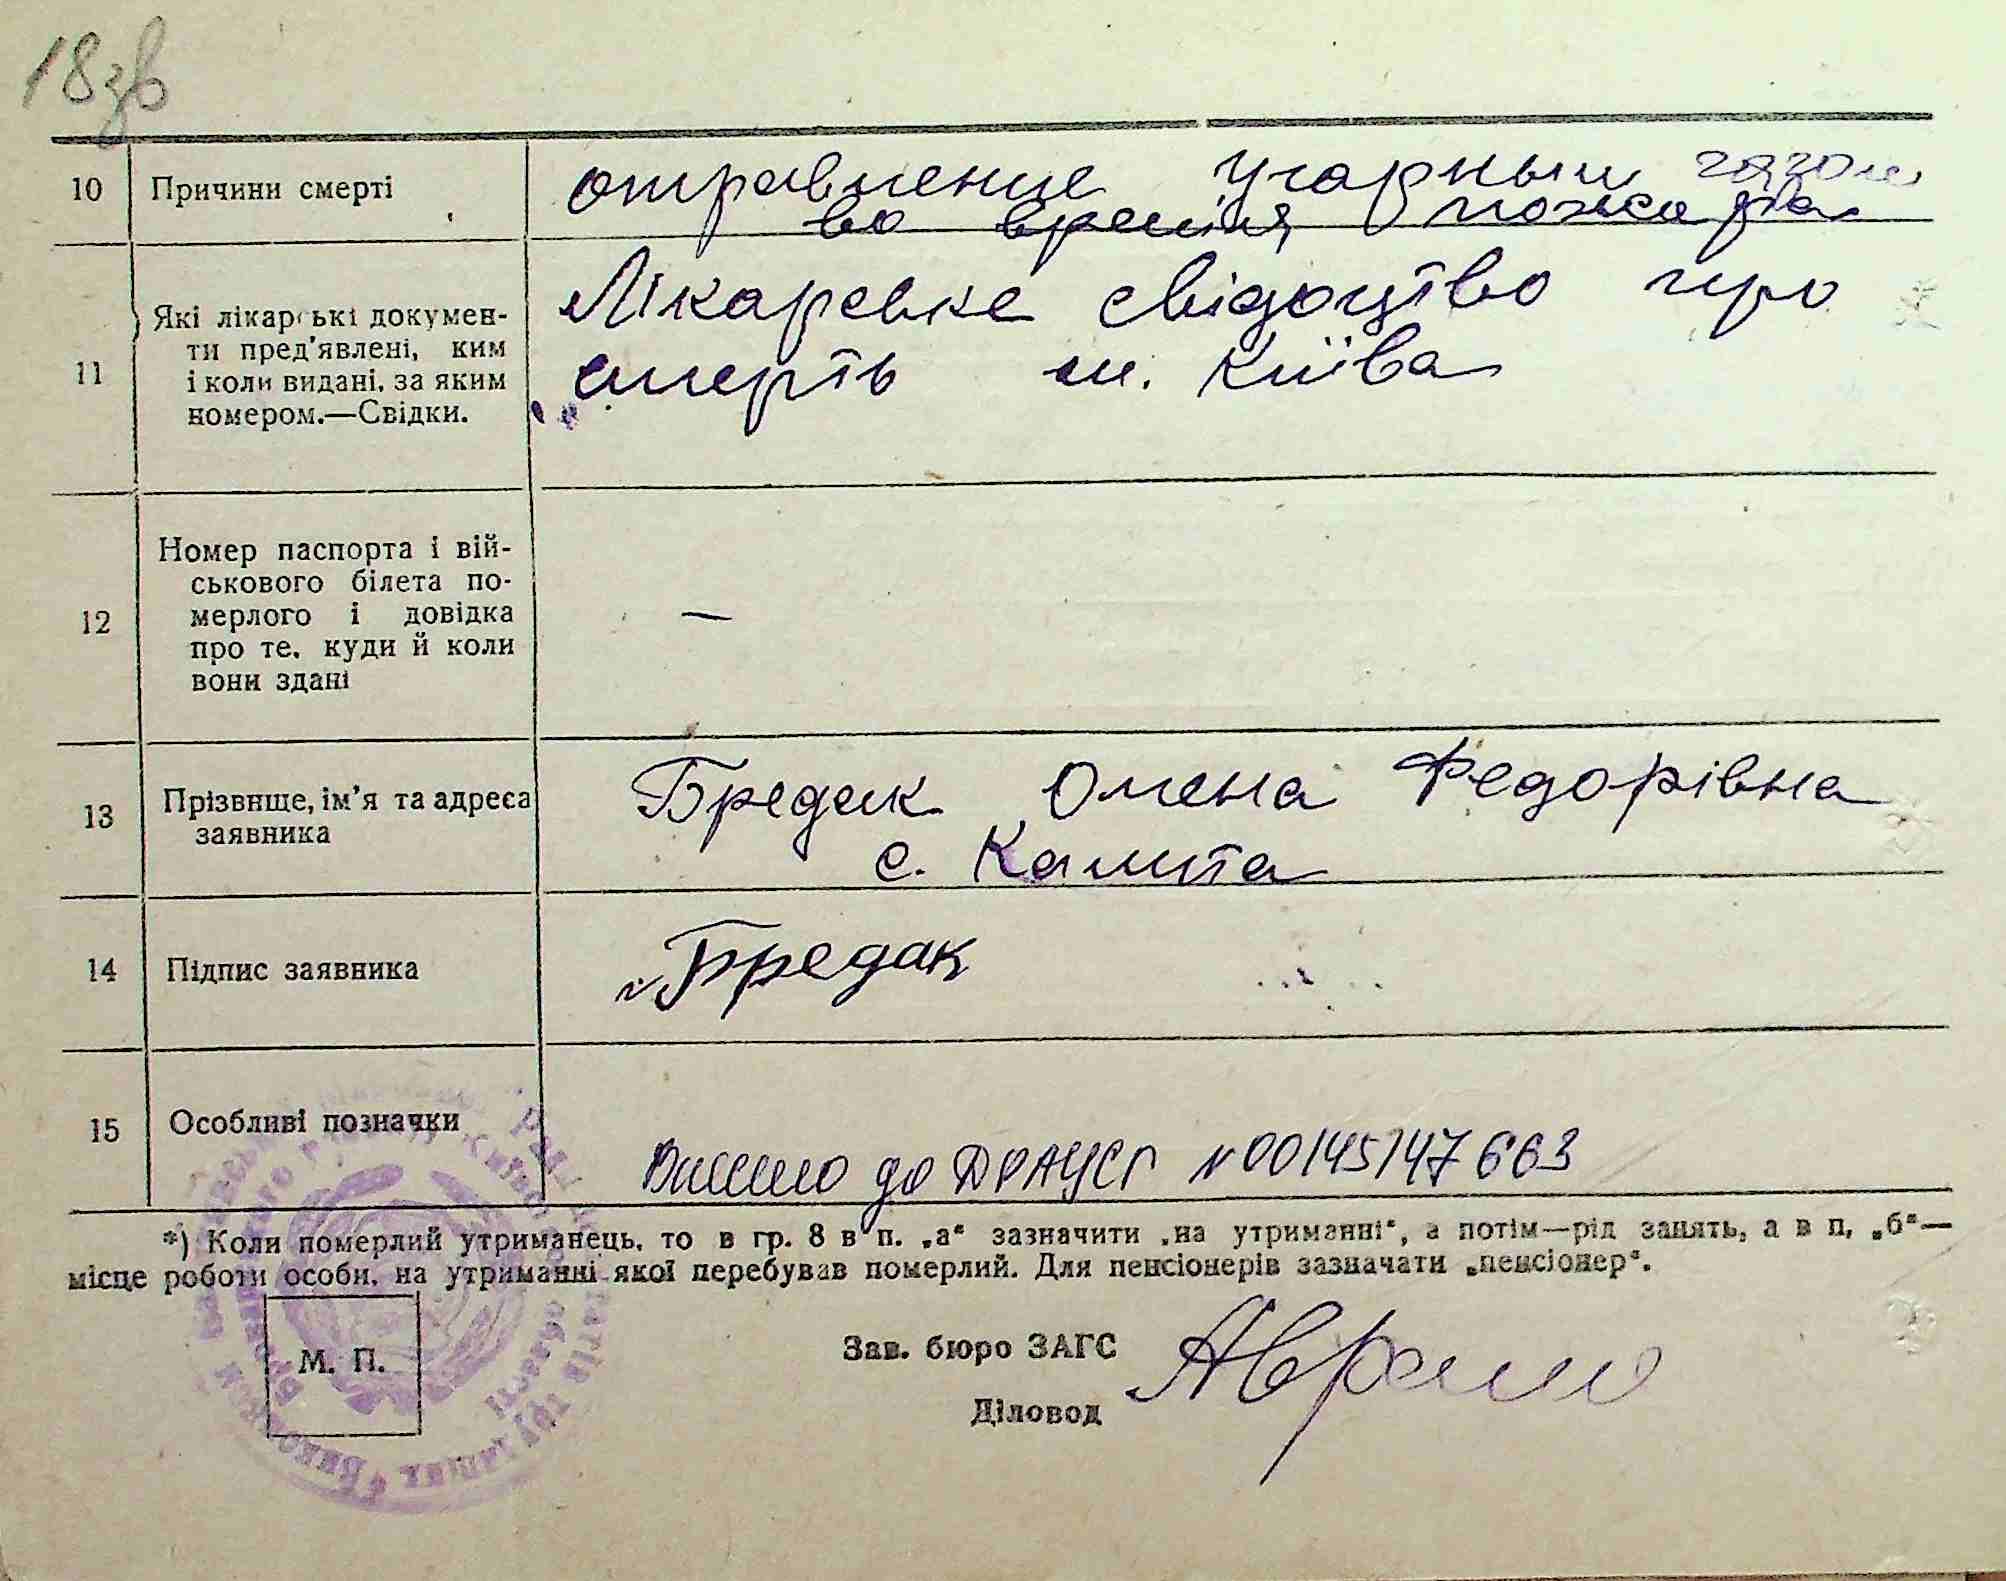 18зв
10 Причини смерті отравление угарным газом
во время пожара
11 Які лікарські докумен-
ти пред'явлені, ким
і коли видані, за яким
номером.—Свідки.
Лікарське свідоцтво про
смерть м. Київа
12 Номер паспорта і вій-
ськового білета по-
мерлого і довідка
про те, куди й коли
вони здані
—
13 Прізвище, ім'я та адреса
заявника
Бредак Олена Федорівна
с. Калита
14 Підпис заявника Бредак
15 Особливі позначки
Внесено до ДРАЦСГ №00145147663
*) Коли померлий утриманець, то в гр. 8 в п. „а“ зазначити „на утриманні“, а потім—рід занять, а в п, „б“—
місце роботи особи, на утриманні якої перебував померлий. Для пенсіонерів зазначати „пенсіонер“.
М. П.
Зав. бюро ЗАГС
Діловод